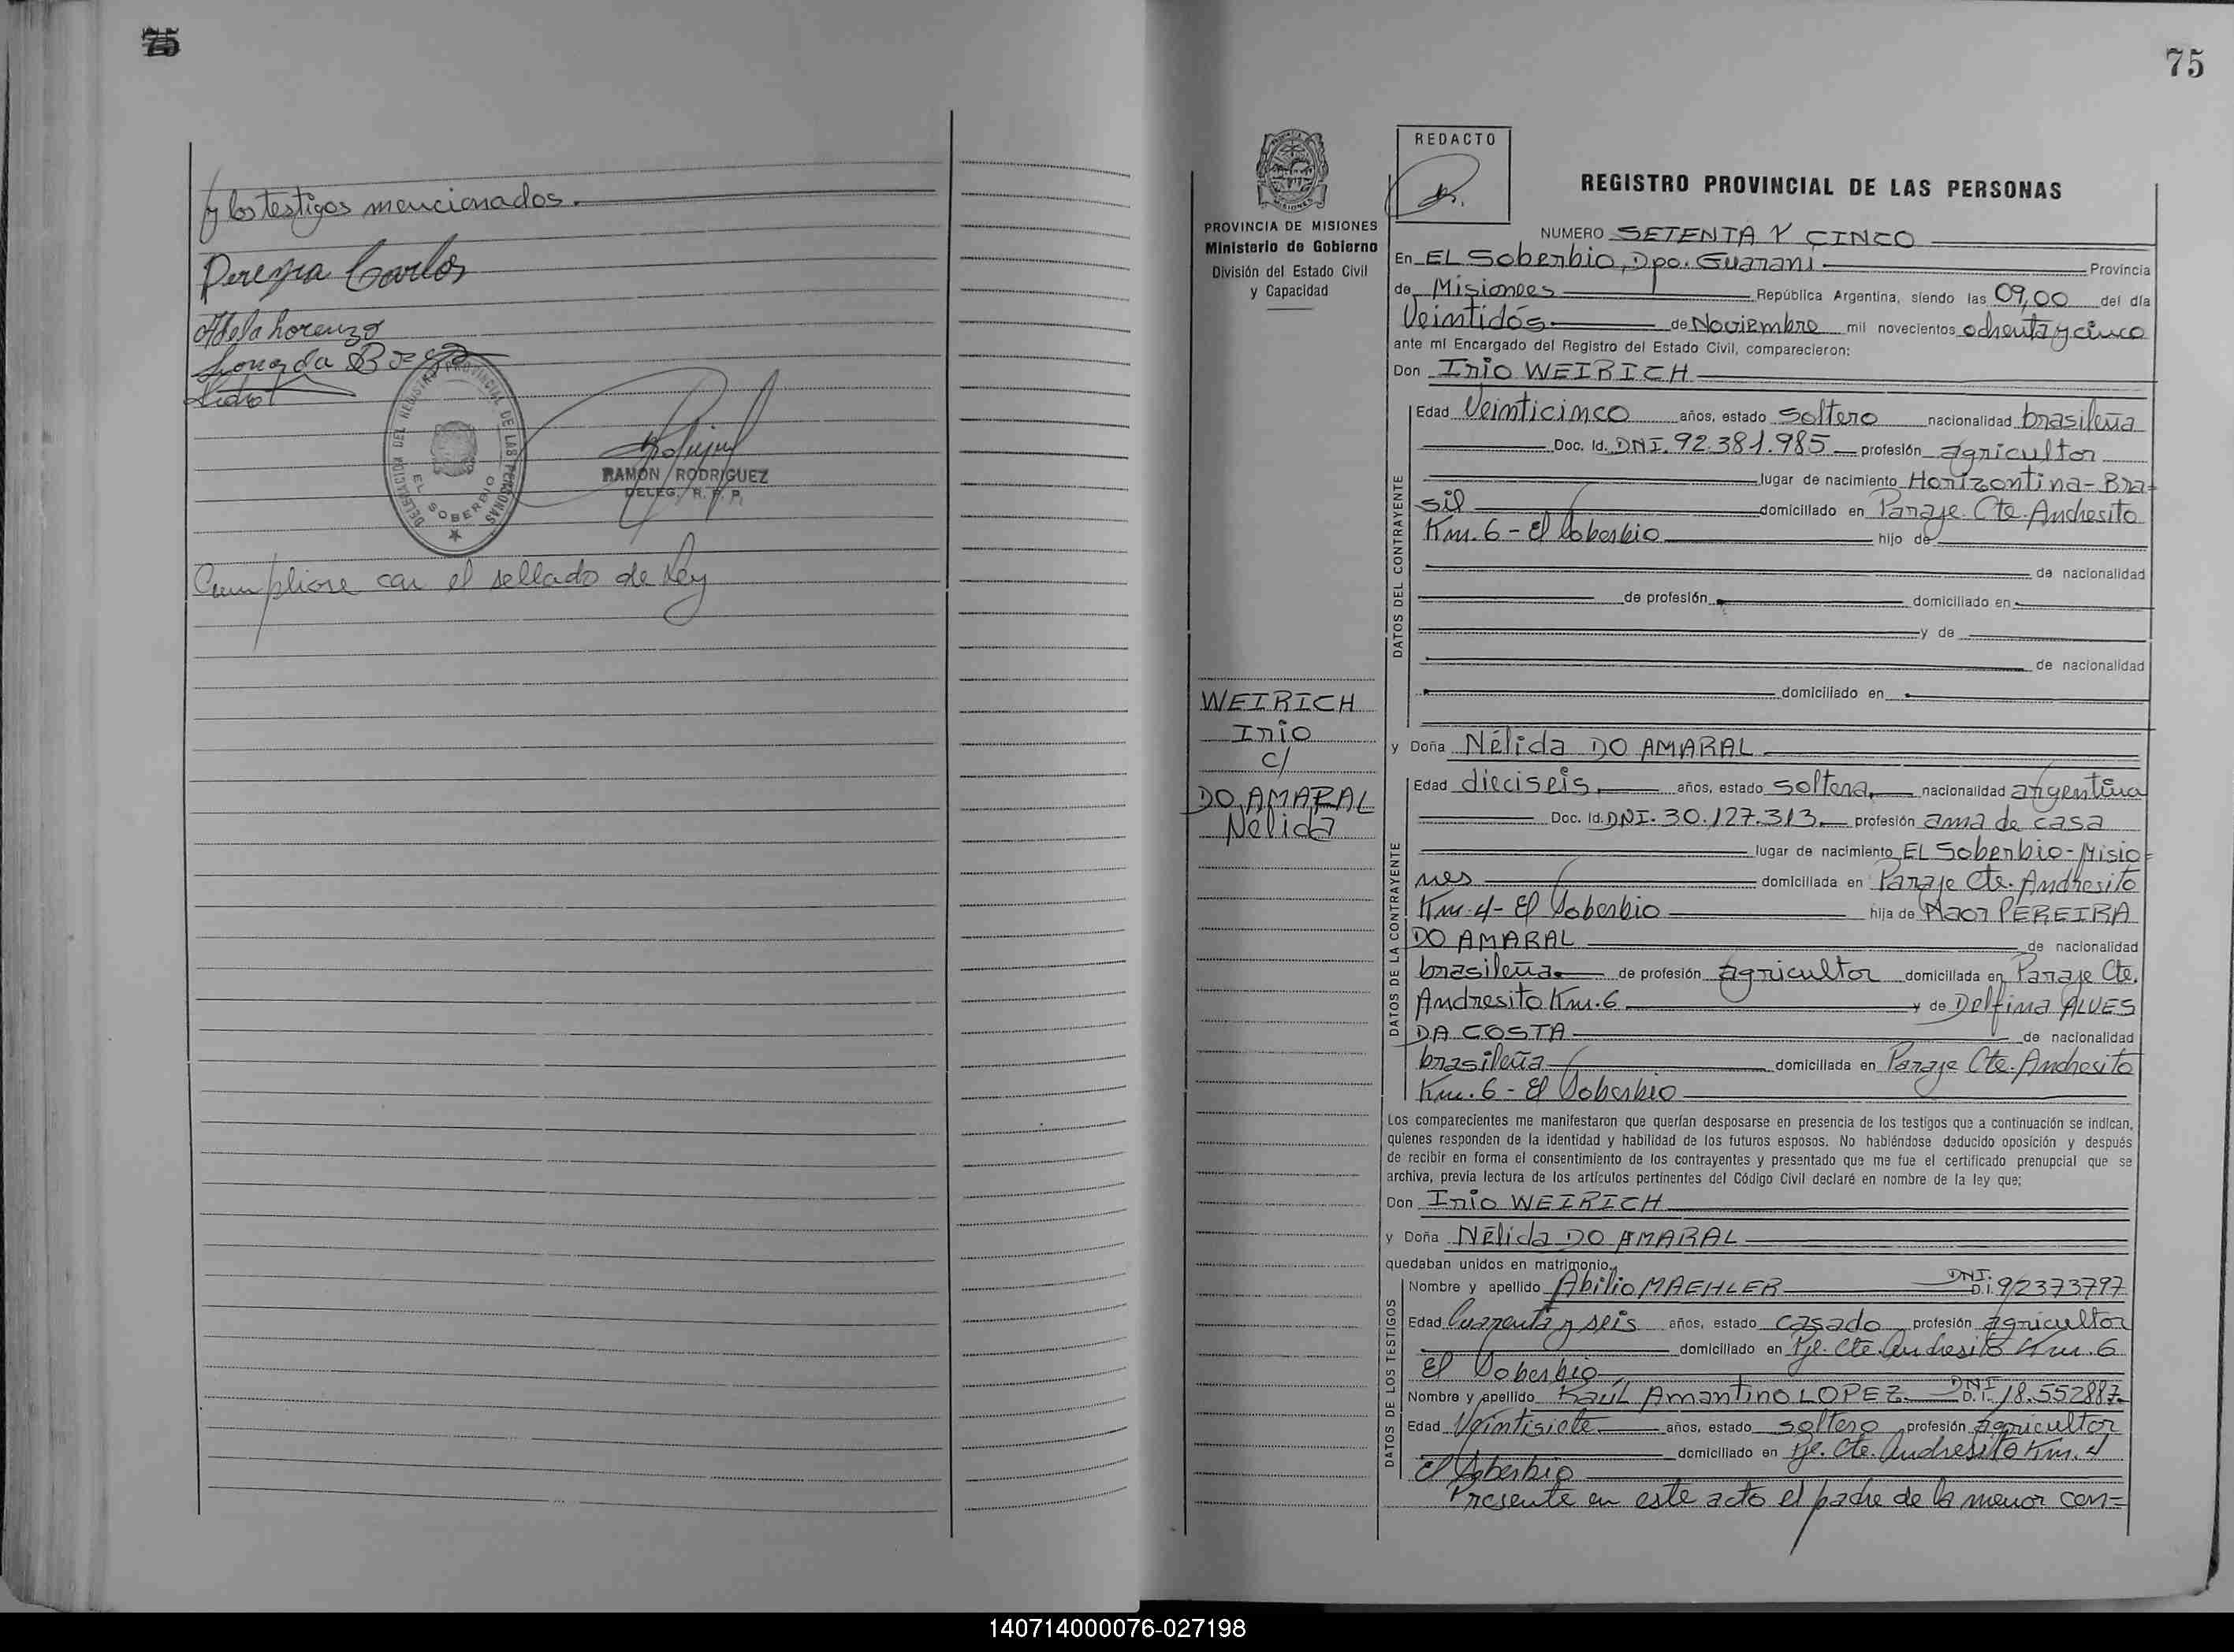 75
y los testigos mencionados.
Pereyra Carlos
Adela Lorenzo
DELEGACION DEL REGISTRO PROVINCIAL DE LAS PERSONAS
EL SOBERBIO
RAMON RODRIGUEZ
DELEG. R. P. P.
Cumpliose con el sellado de Ley
75
REDACTO
PROVINCIA DE MISIONES
Ministerio de Gobierno
División del Estado Civil
y Capacidad
WEIRICH
Irio
c/
DO AMARAL
Nelida
REGISTRO PROVINCIAL DE LAS PERSONAS
NUMERO SETENTA Y CINCO
En EL Soberbio, Dpo. Guarani Provincia
de Misiones República Argentina, siendo las 09,00 del día
Veintidós de Noviembre mil novecientos ochenta y cinco
ante mí Encargado del Registro del Estado Civil, comparecieron:
Don Irio WEIRICH
DATOS DEL CONTRAYENTE
Edad Veinticinco años, estado soltero nacionalidad brasileña
Doc. Id. DNI. 92.381.985 profesión agricultor
lugar de nacimiento Horizontina-Bra-
sil domiciliado en Paraje Cte. Andresito
Km. 6 - El Soberbio hijo de
de nacionalidad
de profesión domiciliado en
y de
de nacionalidad
domiciliado en
y Doña Nélida DO AMARAL
DATOS DE LA CONTRAYENTE
Edad dieciseis años, estado soltera nacionalidad argentina
Doc. Id. DNI. 30.127.313 profesión ama de casa
lugar de nacimiento EL Soberbio-Misio=
nes domiciliada en Paraje Cte. Andresito
Km. 4 - El Soberbio hija de PEREIRA
DO AMARAL de nacionalidad
brasileña de profesión agricultor domiciliada en Paraje Cte.
Andresito Km. 6 y de Delfina ALVES
DA COSTA de nacionalidad
brasileña domiciliada en Paraje Cte. Andresito
Km. 6 - El Soberbio
Los comparecientes me manifestaron que querían desposarse en presencia de los testigos que a continuación se indican,
quienes responden de la identidad y habilidad de los futuros esposos. No habiéndose deducido oposición y después
de recibir en forma el consentimiento de los contrayentes y presentado que me fue el certificado prenupcial que se
archiva, previa lectura de los artículos pertinentes del Código Civil declaré en nombre de la ley que;
Don Irio WEIRICH
y Doña Nélida DO AMARAL
quedaban unidos en matrimonio.
DATOS DE LOS TESTIGOS
Nombre y apellido Abilio MAEHLER DNI. D.I. 92373797
Edad Cuarenta y seis años, estado casado profesión agricultor
domiciliado en Pje. Cte. Andresito Km. 6
El Soberbio
Nombre y apellido Raúl Amantino LOPEZ DNI D.I. 18.552887
Edad Veintisiete años, estado soltero profesión agricultor
domiciliado en Pje. Cte. Andresito Km. 4
El Soberbio
Presente en este acto el padre de la menor con=
140714000076-027198